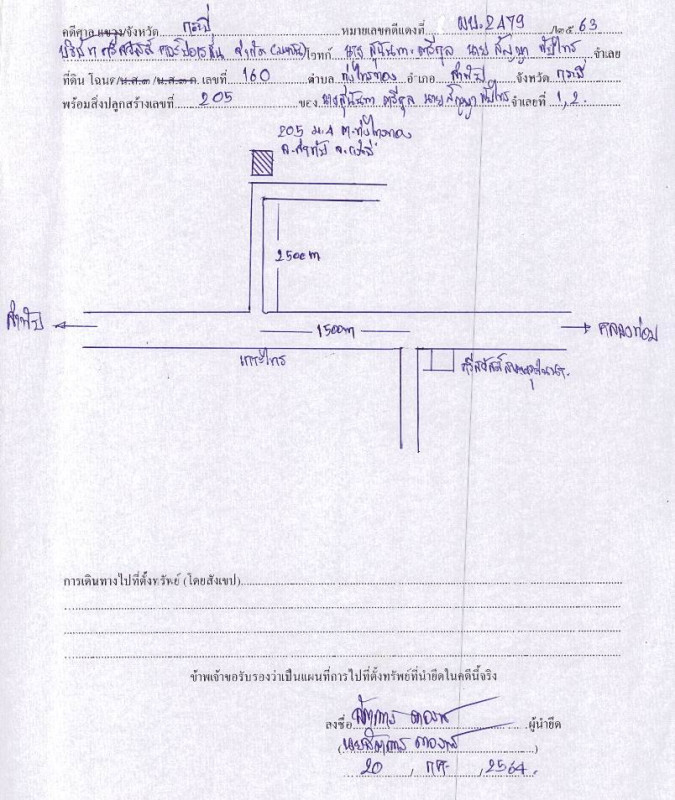 คดีศาล แขวง/จังหวัด กระบี่ หมายเลขคดีแดงที่ ผบ.2479 /๒๕ 63
บริษัท ศรีสวัสดิ์ คอร์ปอเรชั่น จำกัด (มหาชน) โจทก์ นาง สุนันทา ตรีกุล นาย สัญญา ทับไทร จำเลย
ที่ดิน โฉนด/น.ส.๓ /น.ส.๓ ก. เลขที่ 160 ตำบล ทุ่งไทรทอง อำเภอ ลำทับ จังหวัด กระบี่
พร้อมสิ่งปลูกสร้างเลขที่ 205 ของ นางสุนันทา ตรีกุล นาย สัญญา ทับไทร จำเลยที่ 1, 2.
205 ม.4 ต.ทุ่งไทรทอง
อ.ลำทับ จ.กระบี่
2500 m
ลำทับ
1500m
คลองท่อม
เกาะไทร
ศรีสวัสดิ์
การเดินทางไปที่ตั้งทรัพย์ (โดยสังเขป)
ข้าพเจ้าขอรับรองว่าเป็นแผนที่การไปที่ตั้งทรัพย์ที่นำยึดในคดีนี้จริง
ลงชื่อ ผู้นำยึด
(นาย )
20 / กค. / 2564.